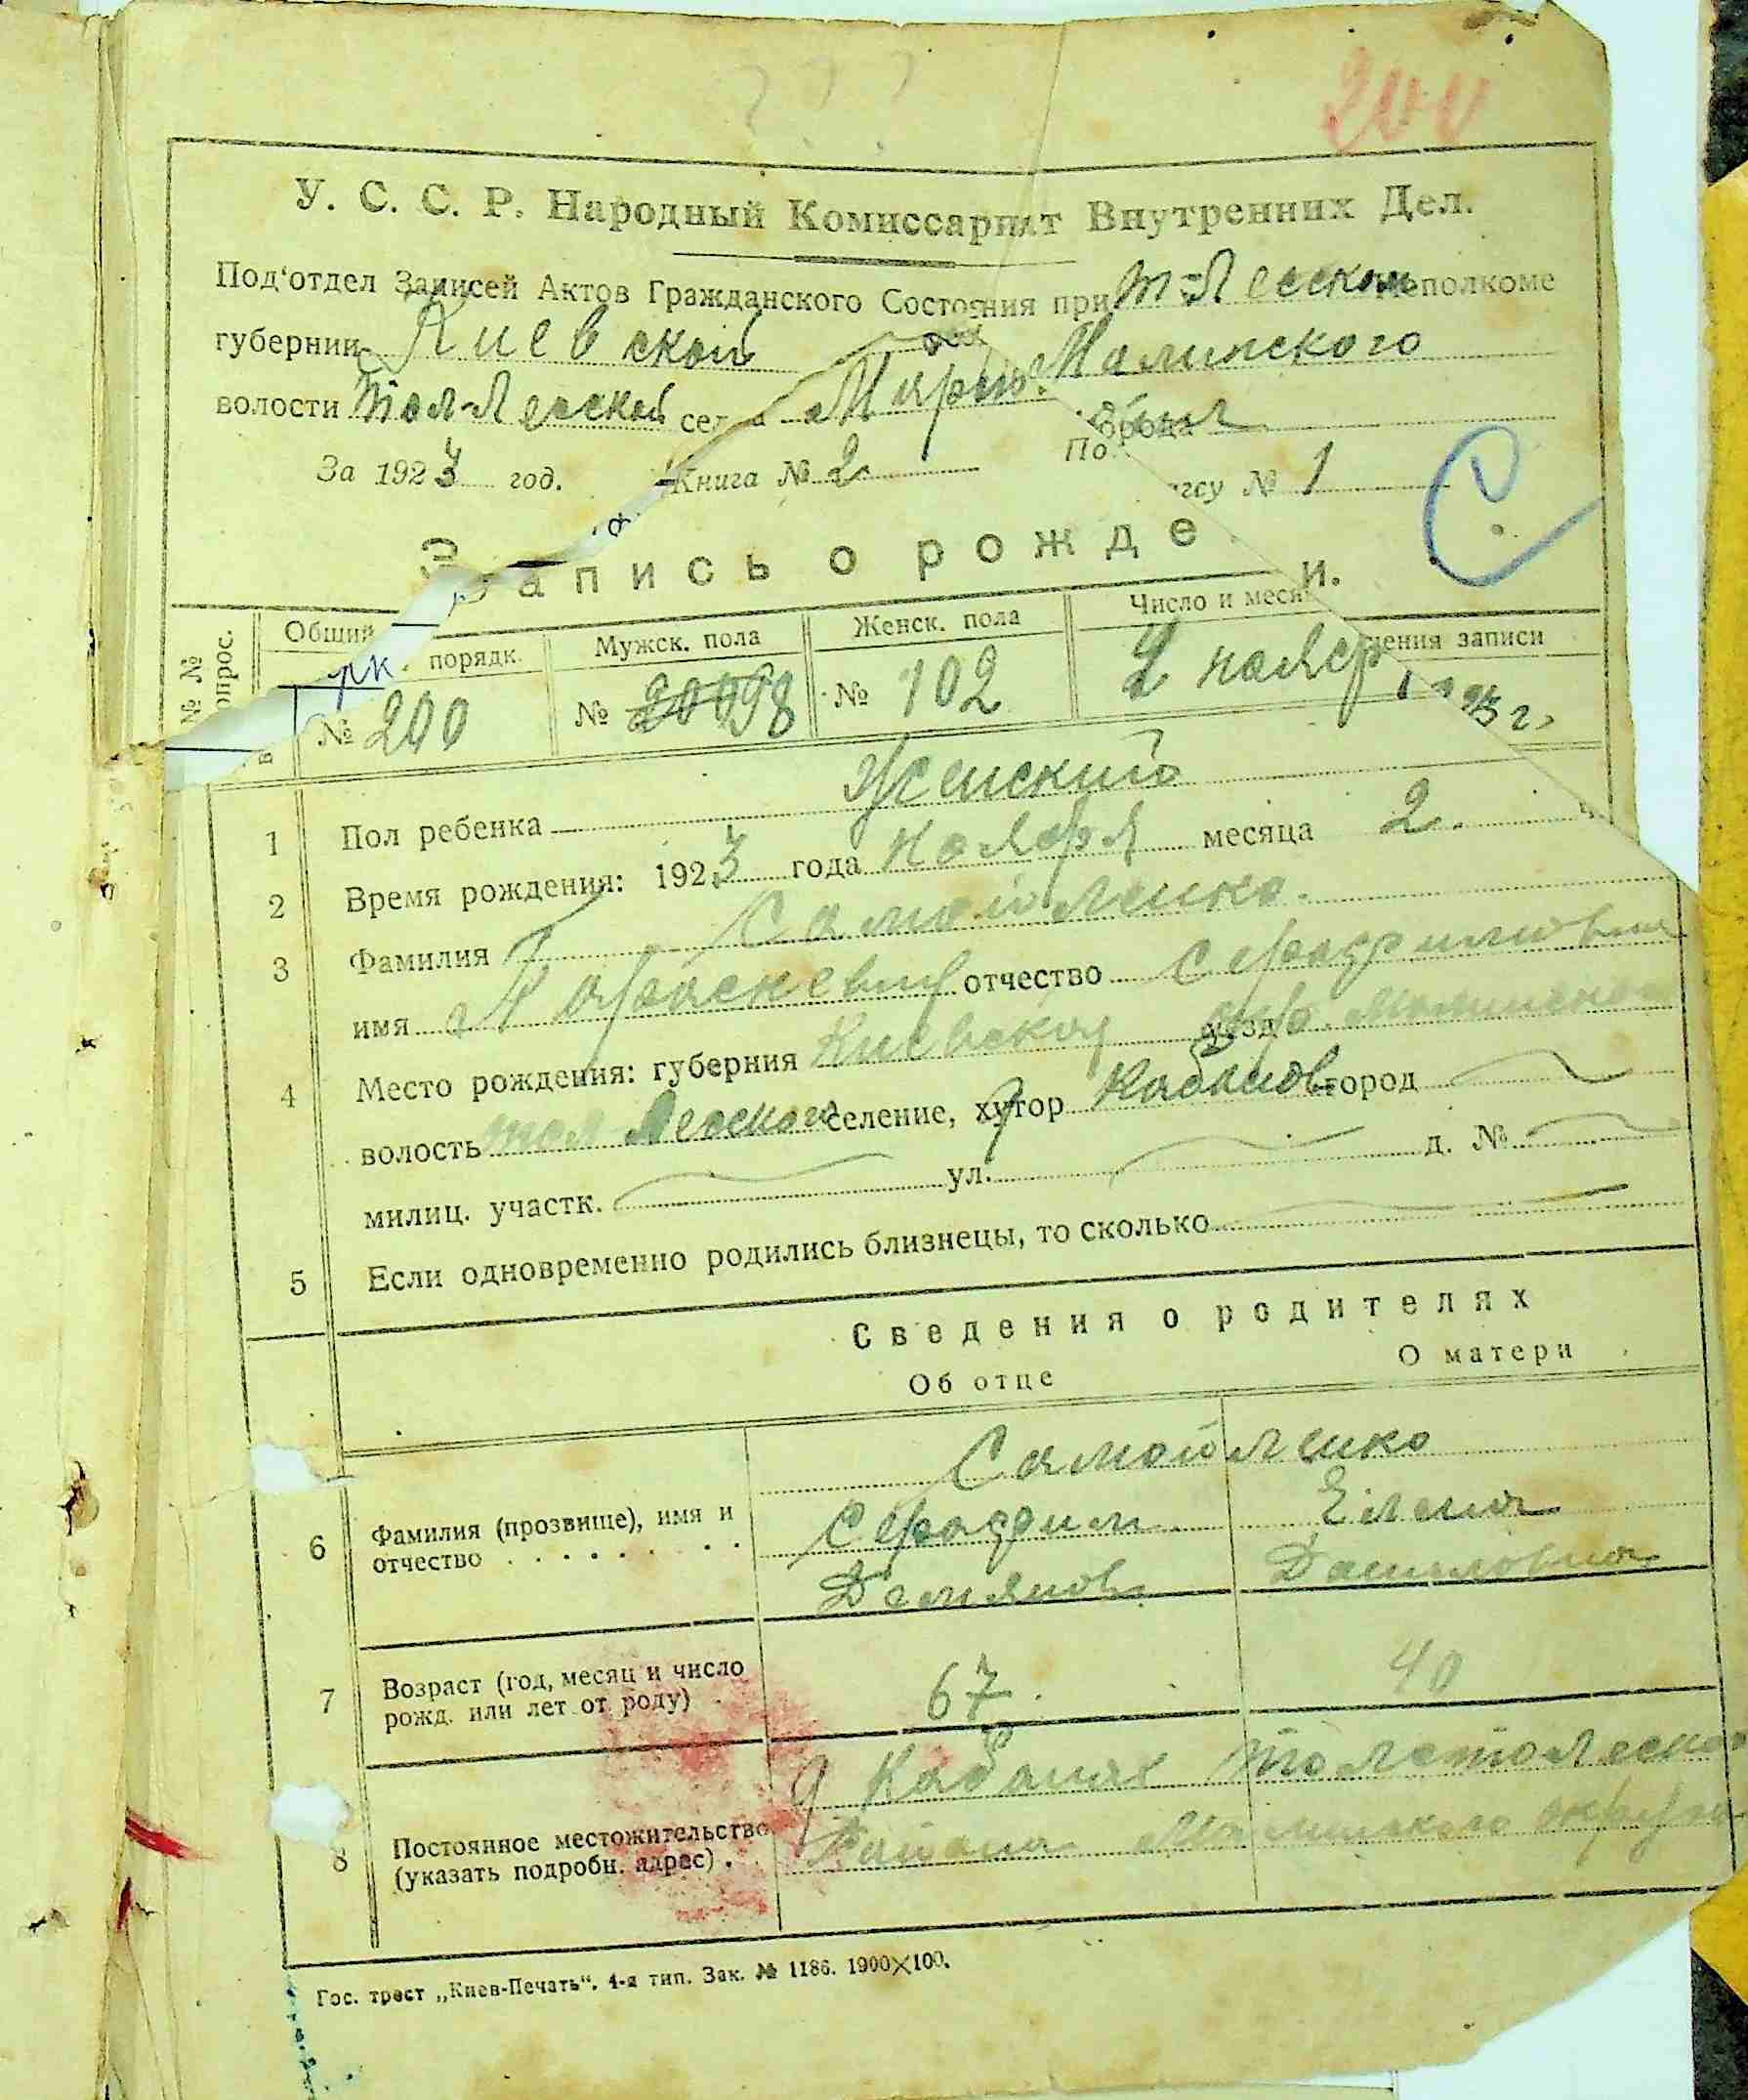 200
У. С. С. Р. Народный Комиссариат Внутренних Дел.
Под'отдел Записей Актов Гражданского Состояния при Т-Лесском исполкоме
губернии Киевской Малинского
волости Тол-Лесской села
За 1923 год. Книга № 2 По № 1
Запись о рожде и.
№ № Общий порядк. Мужск. пола Женск. пола Число и меся чения записи
№ 200 № 98 № 102 2 ноября 1923 г.
1 Пол ребенка Женский
2 Время рождения: 1923 года ноября месяца 2.
3 Фамилия Самойленко.
имя Параскевия отчество Серафимовна
4 Место рождения: губерния Киевская уезд окр. Малинского
волость Тол Лесской селение, хутор Кабанов город
милиц. участк. ул. д. №
5 Если одновременно родились близнецы, то сколько
Сведения о родителях
Об отце О матери
Самойленко
6 Фамилия (прозвище), имя и отчество
Серафим Елена
Демянов Даниловна
7 Возраст (год, месяц и число рожд. или лет от роду) 67. 40
8 Постоянное местожительство (указать подробн. адрес).
Кабанах Толстолеского
Района Малинского округа
Гос. трест „Киев-Печать“. 4-я тип. Зак. № 1186. 1900×100.